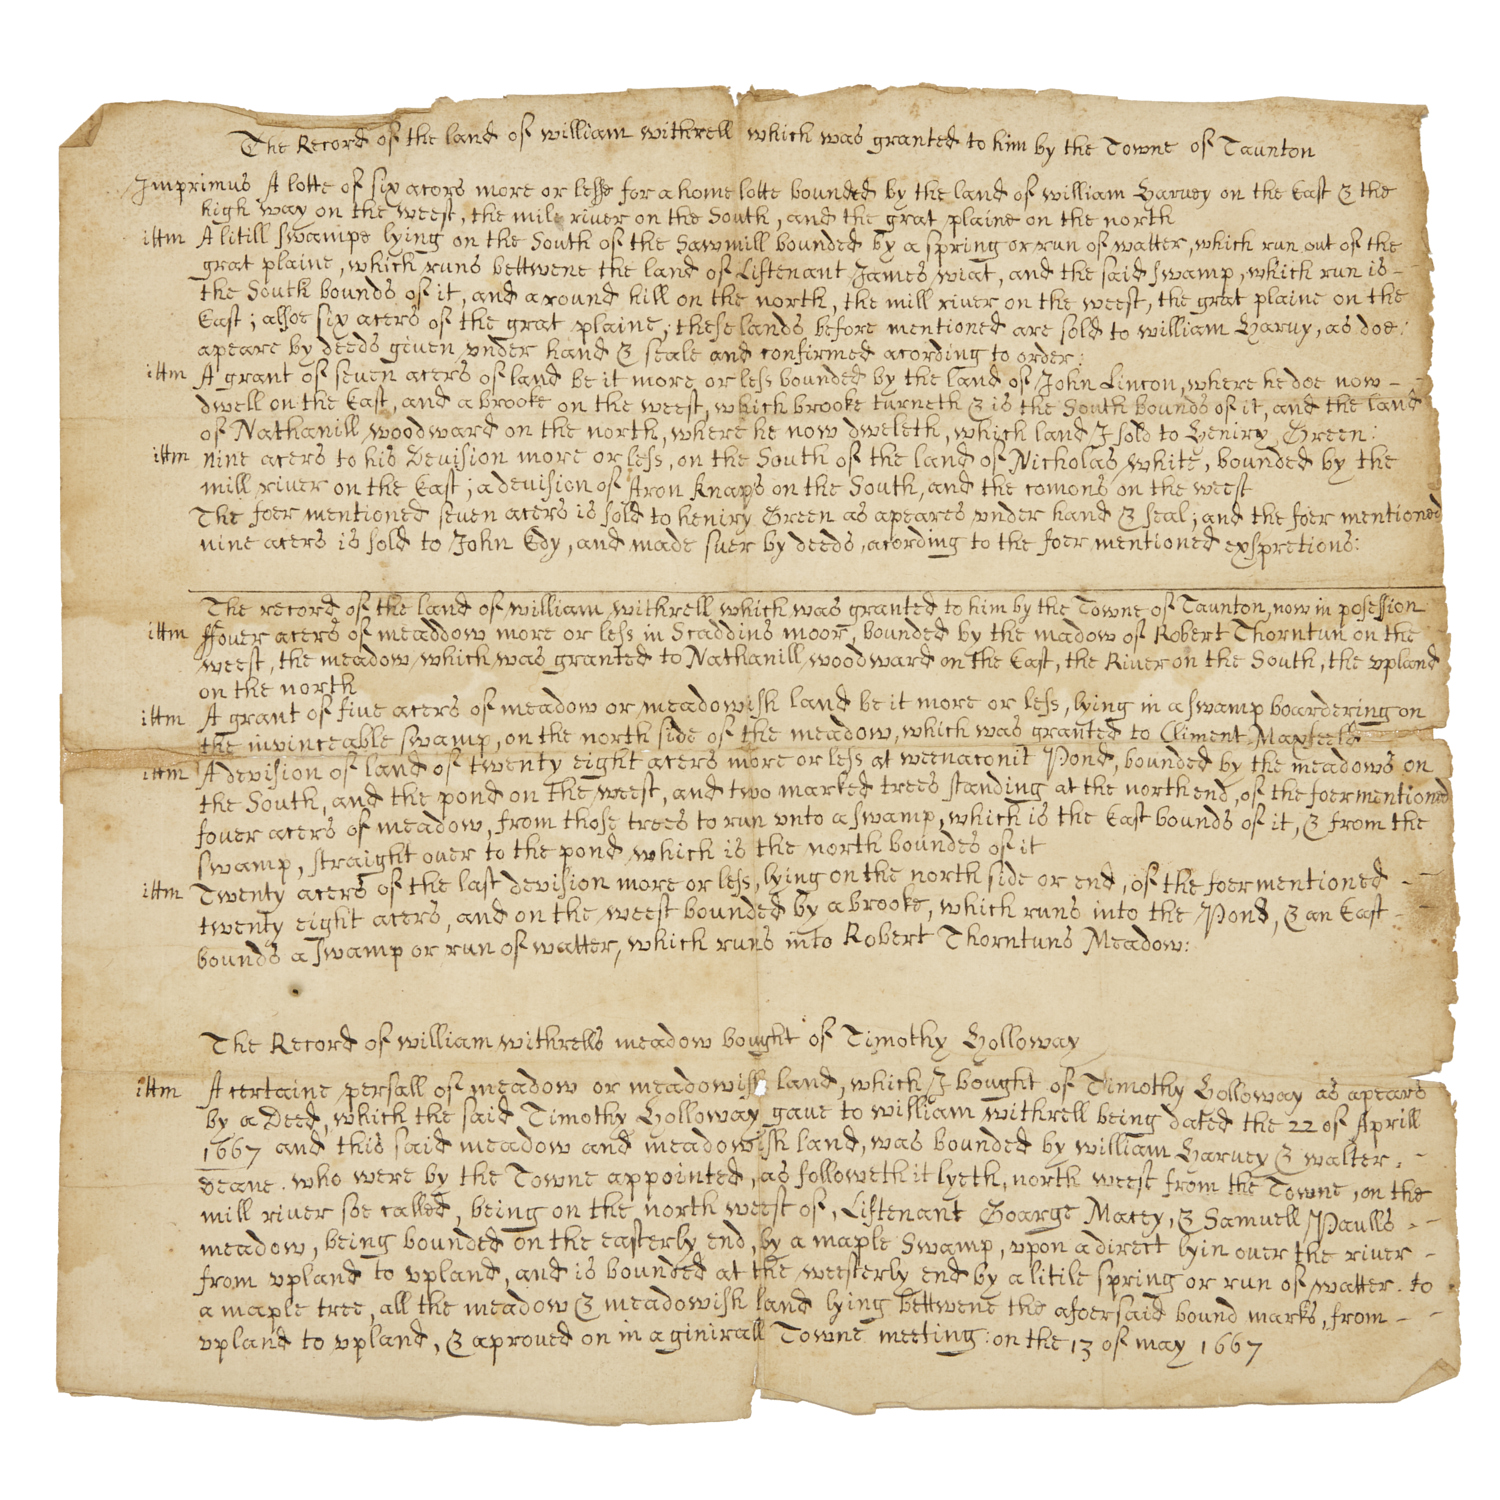 The Record of the land of william withrell which was granted to him by the Towne of Taunton
Imprimus A lotte of six acors more or lesse for a home lotte bounded by the land of william Harvey on the East & the
high way on the weest, the mile river on the South, and the grat plaine on the north
ittm A litill swampe lying on the South of the Sawmill bounded by a spring or run of watter, which run out of the
grat plaine, which runs bettwene the land of Liftenant James wiat, and the said swamp, which run is -
the South bounds of it, and a round hill on the north, the mill river on the weest, the grat plaine on the
East; alsoe six acers of the grat plaine, these lands before mentioned are sold to william Harvy, as doe:
apeare by deeds given vnder hand & seale and confirmed acording to order:
ittm A grant of seuen acers of land be it more or less bounded by the land of John Lincon, where he doe now -
dwell on the East, and a brooke on the weest, which brooke turneth & is the South bounds of it, and the land
of Nathanill woodward on the north, where he now dweleth, which land I sold to Heniry Green:
ittm nine acers to his Devision more or less, on the South of the land of Nicholas white, bounded by the
mill river on the East; a devision of Aron Knaps on the South, and the comons on the weest
The foer mentioned seuen acers is sold to heniry Green as apeares vnder hand & seal; and the foer mentioned
nine acers is sold to John Edy, and made suer by deeds, acording to the foer mentioned expretions:
The record of the land of william withrell which was granted to him by the Towne of Taunton, now in posession
ittm ffouer acers of meaddow more or less in Scaddins moor, bounded by the madow of Robert Thorntun on the
weest, the meadow which was granted to Nathanill woodward on the East, the River on the South, the vpland
on the north
ittm A grant of fiue acers of meadow or meadowish land be it more or less, lying in a swamp boardering on
the invinceable swamp, on the north side of the meadow, which was granted to Climent Maxfeeld
ittm A devision of land of twenty eight acers more or less at weenaconit Pond, bounded by the meadows on
the South, and the pond on the weest, and two marked trees standing at the north end, of the foer mentioned
fouer acers of meadow, from those trees to run vnto a swamp, which is the East bounds of it, & from the
swamp, straight ouer to the pond which is the north boundes of it
ittm Twenty acers of the last devision more or less, lying on the north side or end, of the foer mentioned -
twenty eight acers, and on the weest bounded by a brooke, which runs into the Pond, & an East -
bounds a swamp or run of watter, which runs into Robert Thorntuns Meadow:
The Record of william withrells meadow bought of Timothy Holloway
ittm A certaine persall of meadow or meadowish land, which I bought of Timothy Holloway as apears
by a Deed, which the said Timothy Holloway gaue to william withrell being dated the 22 of Aprill
1667 and this said meadow and meadowish land, was bounded by william Harvey & walter -
deane. who were by the Towne appointed, as followeth it lyeth, north weest from the Towne, on the
mill river soe called, being on the north weest of, Liftenant Goarge Macey, & Samuell Paulls -
meadow, being bounded on the easterly end, by a maple swamp, vpon a direct lyin over the river -
from vpland to vpland, and is bounded at the weesterly end by a litile spring or run of watter. to
a maple tree, all the meadow & meadowish land lying bettwene the afoersaid bound marks, from -
vpland to vpland, & aproued on in a ginirall Towne meeting: on the 13 of may 1667